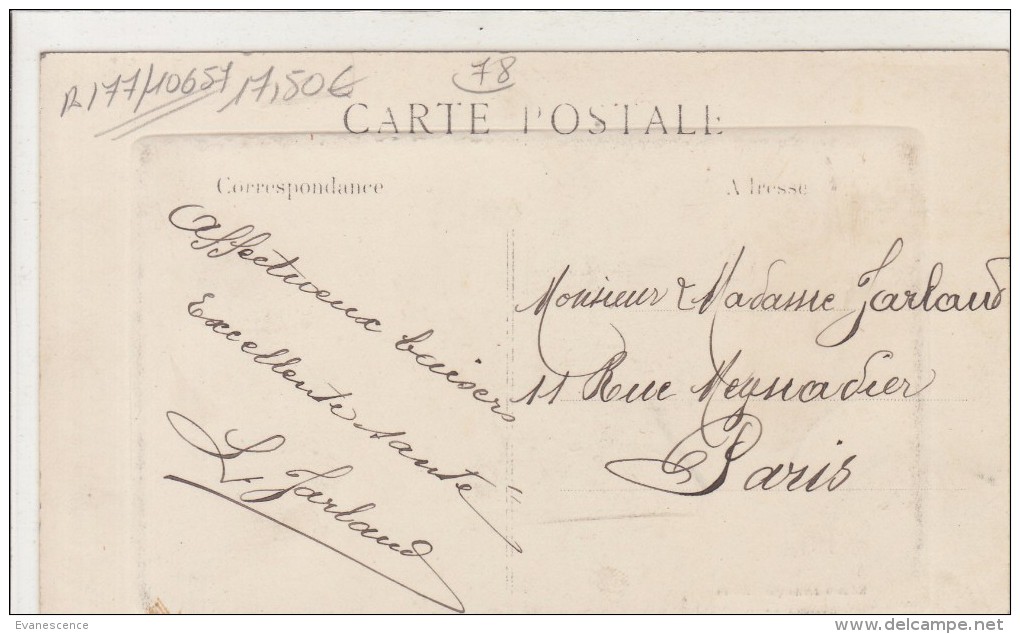 R177/10657 17,50€
78
CARTE POSTALE
Correspondance
Adresse
Affectueux baisers
Excellente sante
L Jarlaud
Monsieur & Madame Jarlaud
11 Rue Meynadier
Paris
Evanescence
www.delcampe.net